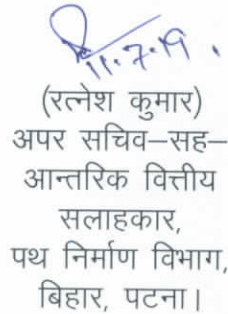 11.7.19.
(रत्नेश कुमार)
अपर सचिव–सह–
आन्तरिक वित्तीय
सलाहकार,
पथ निर्माण विभाग,
बिहार, पटना।